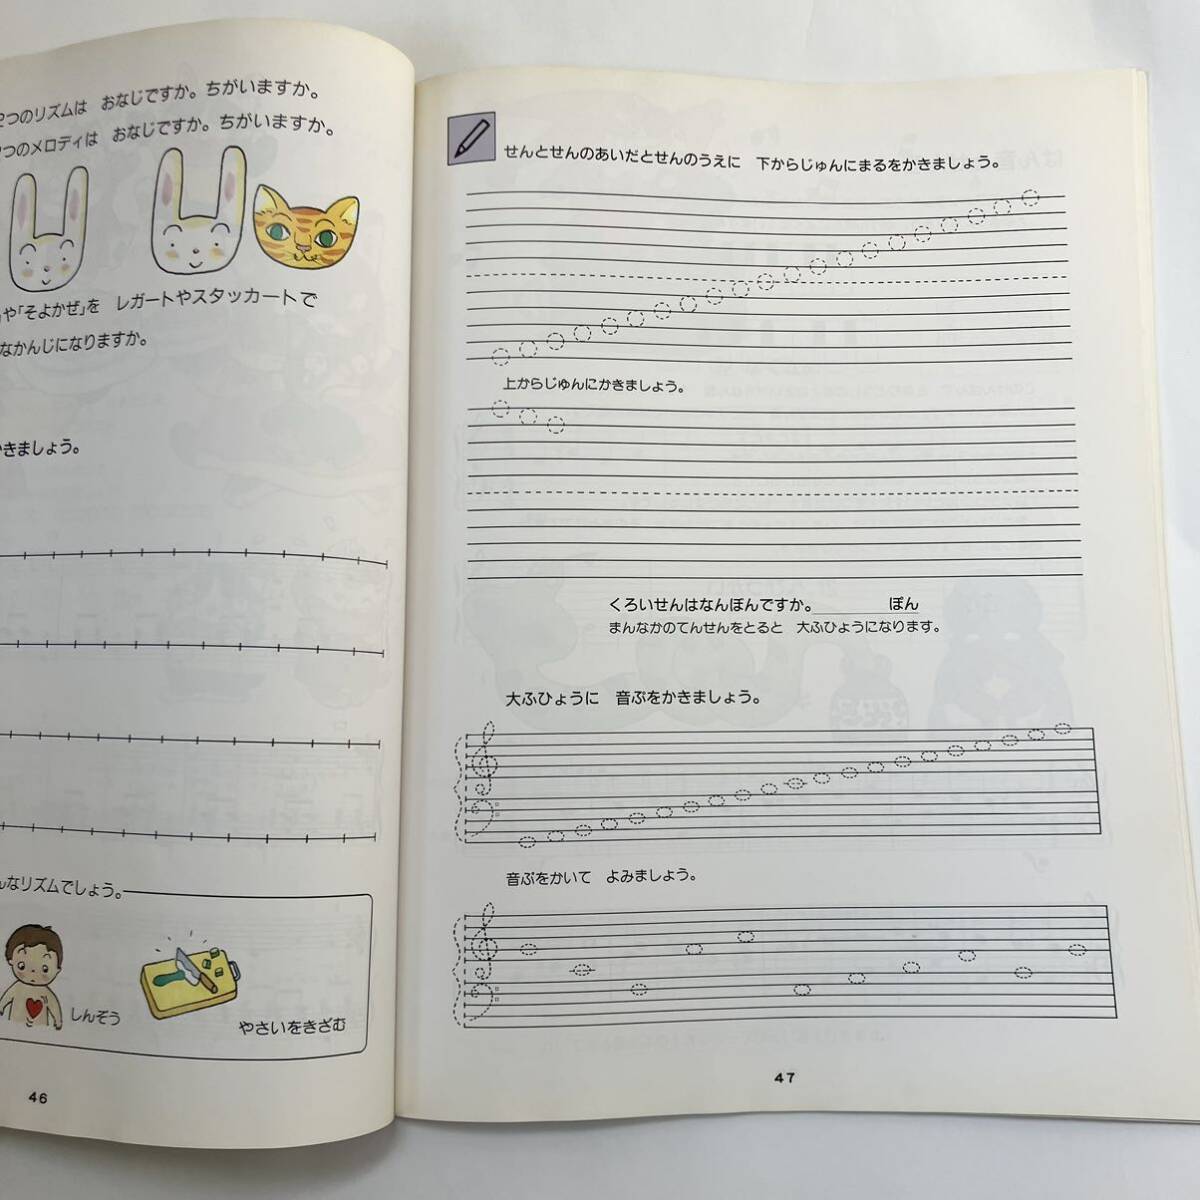 2つのリズムは おなじですか。ちがいますか。
つのメロディは おなじですか。ちがいますか。
や「そよかぜ」を レガートやスタッカートで
なかんじになりますか。
かきましょう。
んなリズムでしょう。
しんぞう
やさいをきざむ
46
せんとせんのあいだとせんのうえに 下からじゅんにまるをかきましょう。
上からじゅんにかきましょう。
くろいせんはなんぼんですか。 ぽん
まんなかのてんせんをとると 大ふひょうになります。
大ふひょうに 音ぷをかきましょう。
音ぷをかいて よみましょう。
47